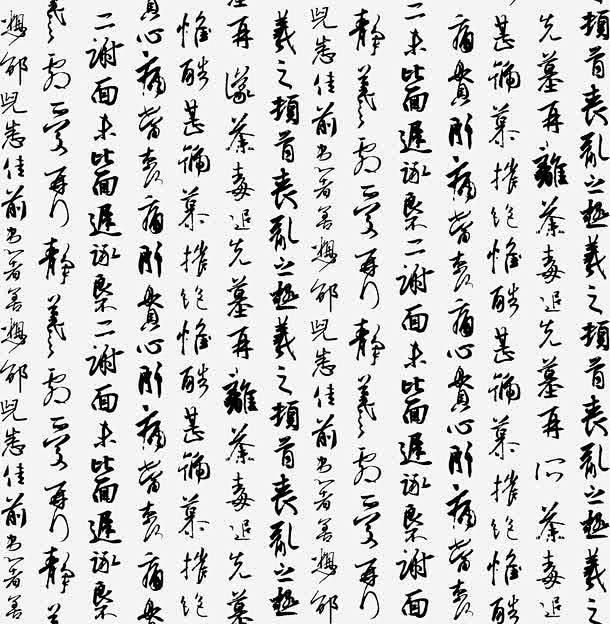 頓首喪亂之極羲之頓首喪亂之極羲之
先墓再離荼毒追先墓再荼毒追
甚號慕摧絕惟酷甚號慕摧絕惟酷
痛貫所痛當奈痛心貫心所痛當奈
二未比面遲詠良二謝面未比面遲詠良謝面
靜羲之女愛再行靜羲之女愛再行
兒悉佳前患者善想邵兒悉佳前患者善想邵
羲之頓首喪亂之極羲之頓首喪亂之極
再荼毒追先墓再離荼毒追先墓
惟酷甚號慕摧絕惟酷甚號慕摧絕
貫心痛當奈痛所貫心所痛當奈痛
二謝面未比面遲詠良二謝面未比面遲詠良
羲之女愛再行靜羲之女愛再行靜
想邵兒悉佳前患者善想邵兒悉佳前患者善